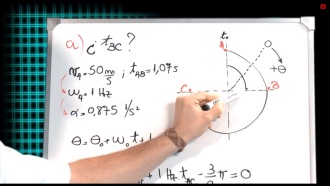 a) ¿ t_BC?
v_A = 50 m/s ; t_AB = 1,07 s
ω_A = 1 Hz
α = 0,875 1/s²
θ = θ₀ + ω₀ t +
1 Hz t - 3/2 π = 0
t₀
A
θ
+θ
B
C